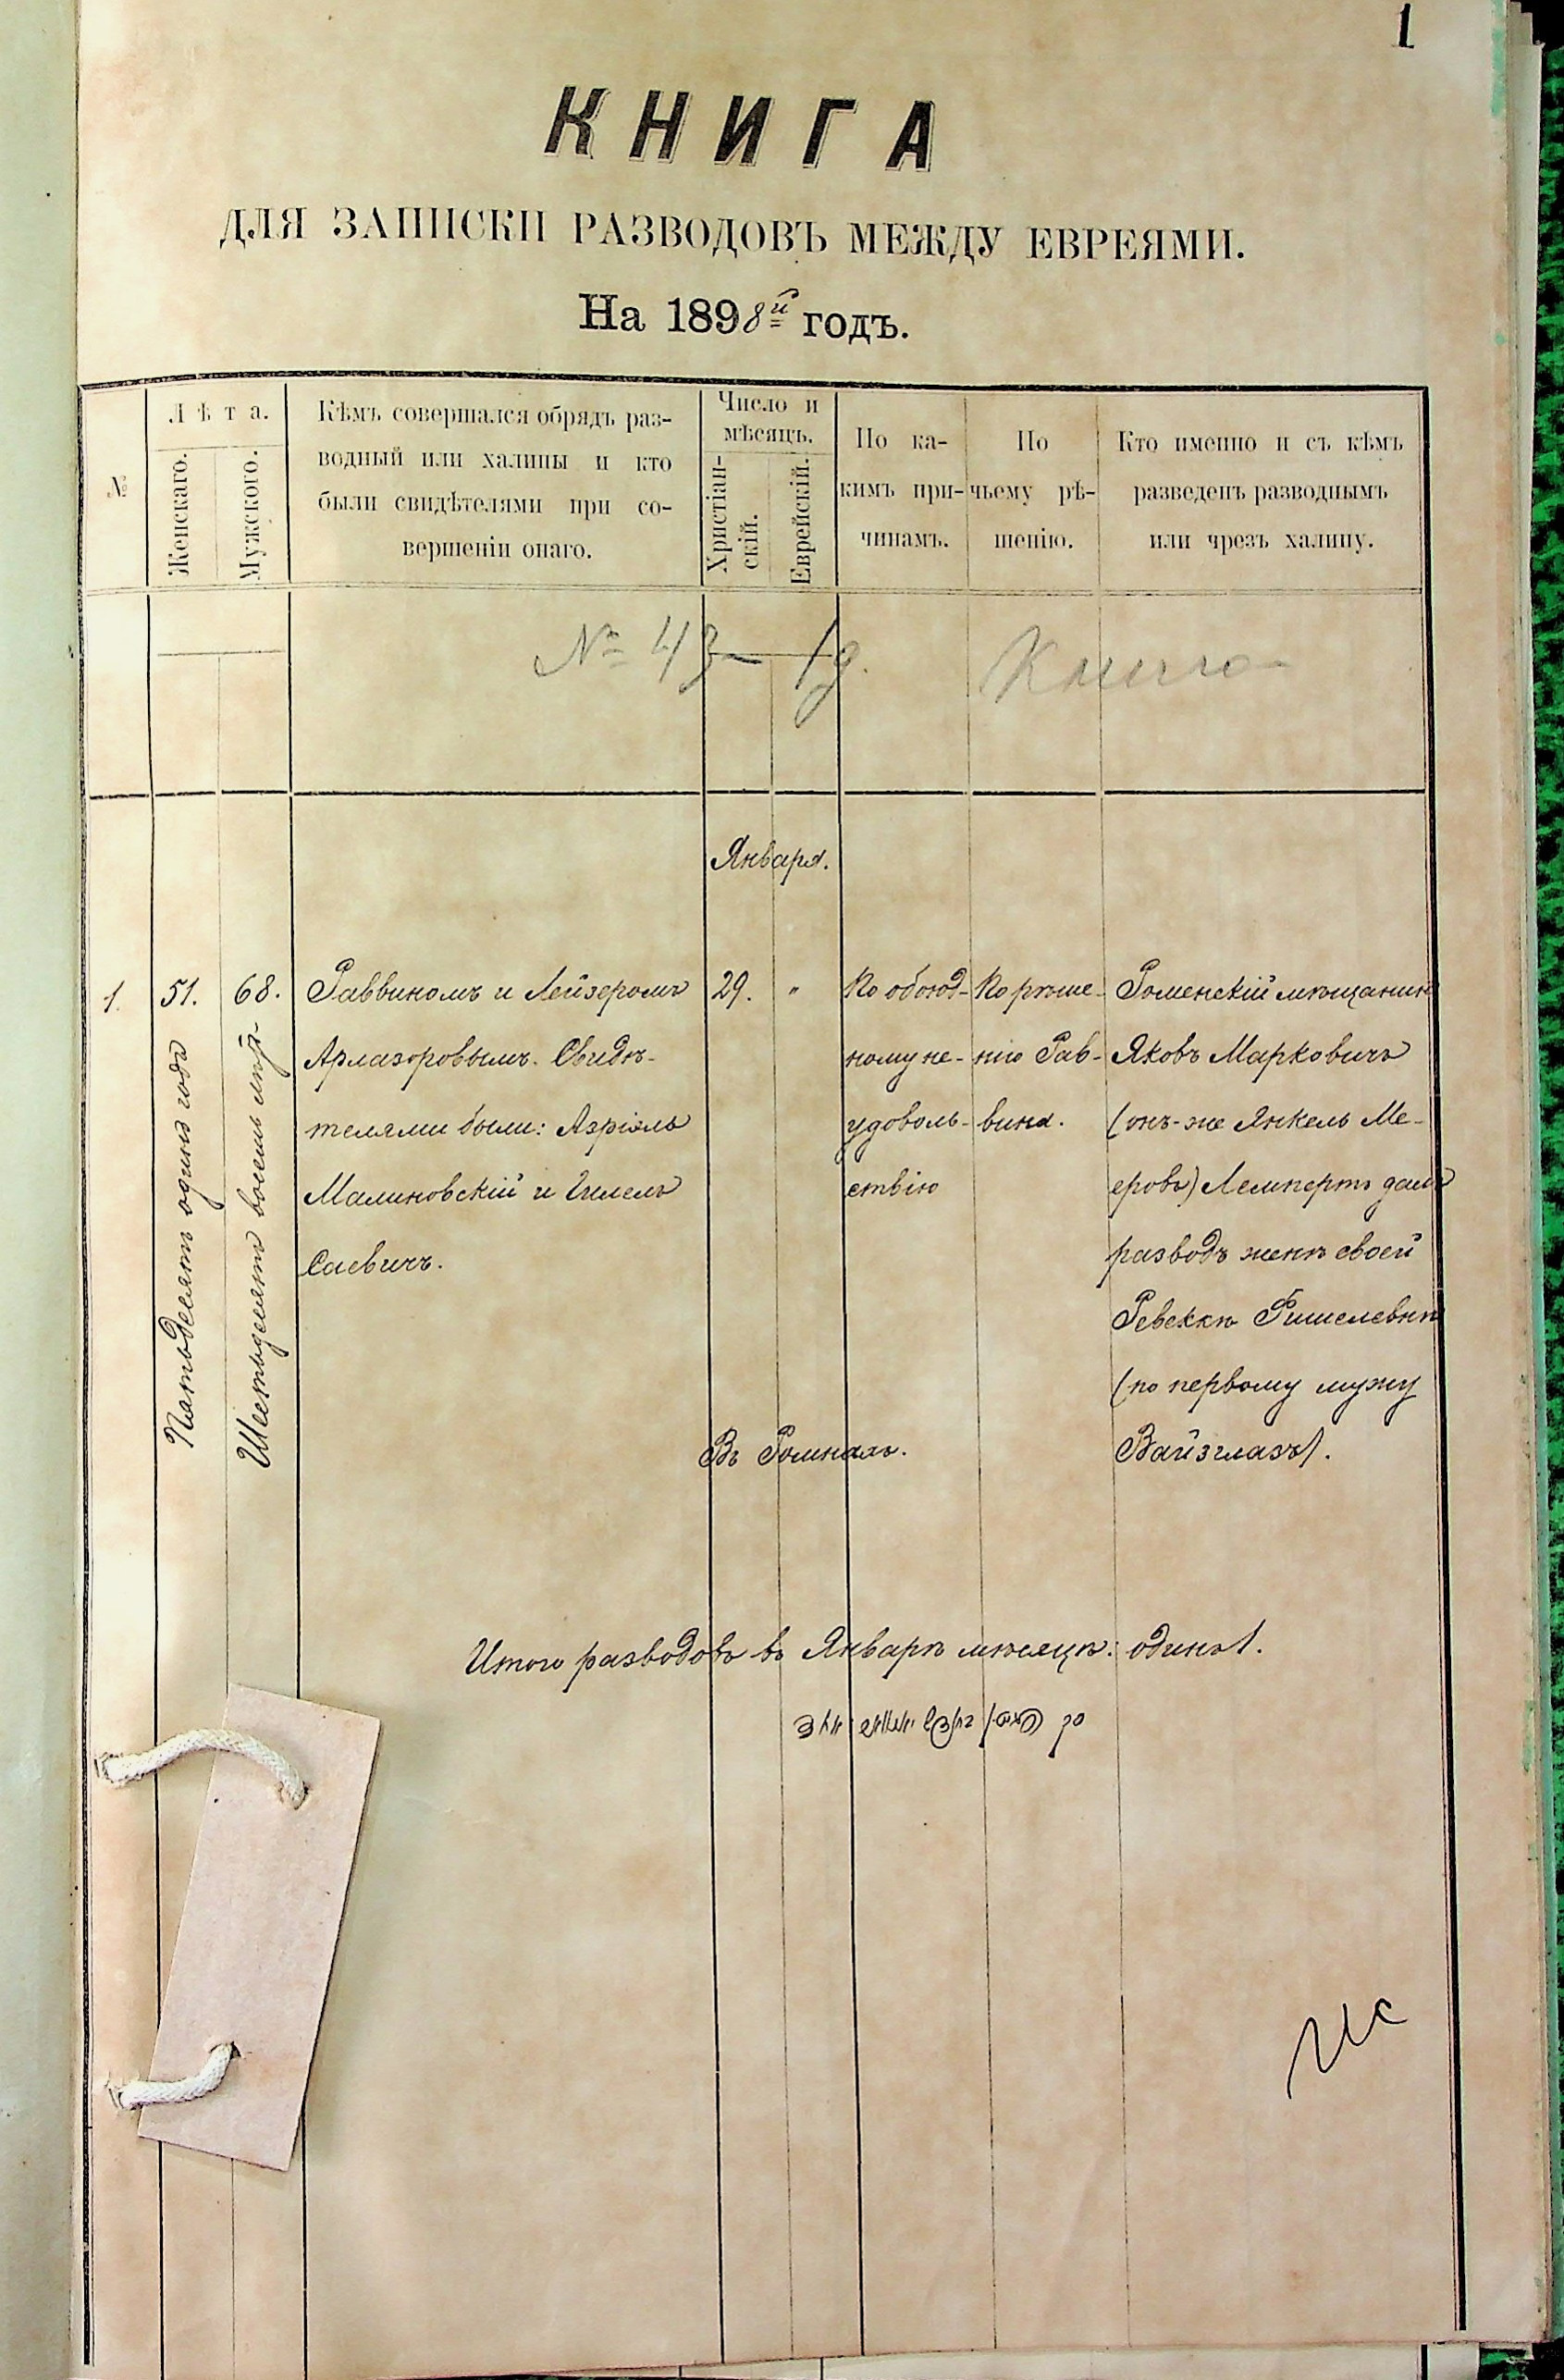 1
КНИГА
ДЛЯ ЗАПИСКИ РАЗВОДОВЪ МЕЖДУ ЕВРЕЯМИ.
На 1898й годъ.
№
Лѣта.
Женскаго.
Мужскаго.
Кѣмъ совершался обрядъ раз-
водный или халицы и кто
были свидѣтелями при со-
вершеніи онаго.
Число и
мѣсяцъ.
Христіан-
скій.
Еврейскій.
По ка-
кимъ при-
чинамъ.
По
чьему рѣ-
шенію.
Кто именно и съ кѣмъ
разведенъ разводнымъ
или чрезъ халицу.
№ 43 —
Книга
Января.
1.
51.
Пятьдесятъ одинъ годъ
68.
Шестьдесятъ восемь лѣтъ
Раввиномъ и Лейзеромъ
Арлазоровымъ. Свидѣ-
телями были: Азріэль
Малиновскій и Гилель
Саевичъ.
29. "
По обоюд-
ному не-
удоволь-
ствію
По рѣше-
нію Рав-
вина.
Роменскій мѣщанинъ
Яковъ Марковичъ
(онъ-же Янкель Ме-
еровъ) Лемпертъ далъ
разводъ женѣ своей
Ревеккѣ Фишелевнѣ
(по первому мужу
Вайзглазъ).
Въ Ромнахъ.
Итого разводовъ въ Январѣ мѣсяцѣ: одинъ 1.